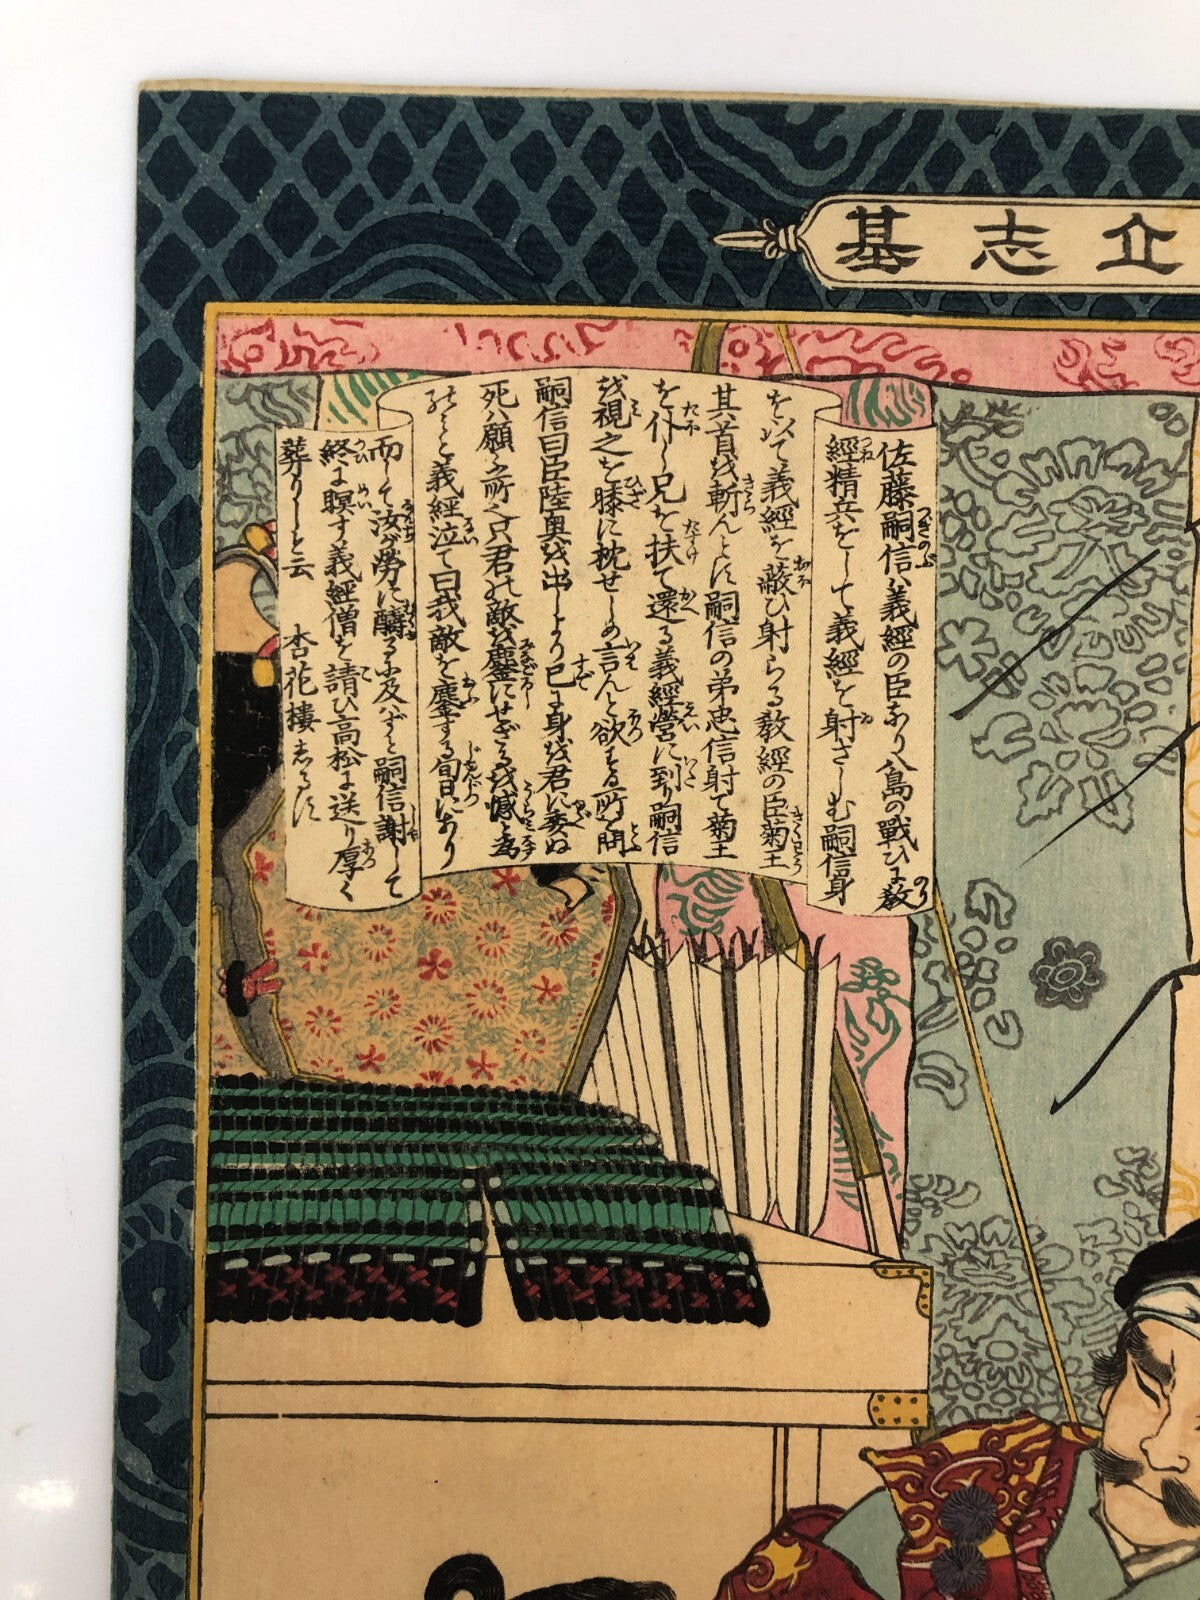 立志基
佐藤嗣信ハ義經の臣なり八島の戰ひに敎
經精兵をして義經を射さしむ嗣信身
を以て義經を蔽ひ射らる敎經の臣菊王
其首を斬んとす嗣信の弟忠信射て菊王
を仆し兄を扶て還る義經營に到り嗣信
を視之を膝に枕せしめ言んと欲する所を問
嗣信曰臣陸奥を出しより已に身を君に委ぬ
死ハ願ふ所只君の敵を鏖にせざるを憾と爲
のミと義經泣て曰我敵を鏖する旬日にあり
而して汝が勞に酬るに及バずと嗣信謝して
終に瞑す義經僧を請ひ高松に送り厚く
葬りしと云 杏花樓しるす